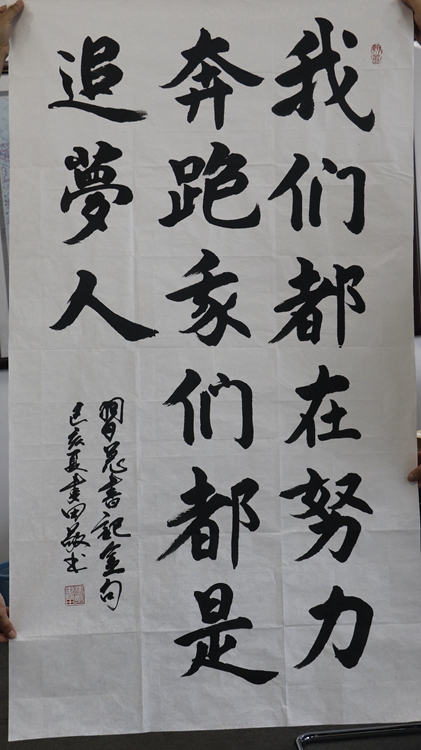 我们都在努力
奔跑我们都是
追夢人
習总書記金句
己亥夏田敬书